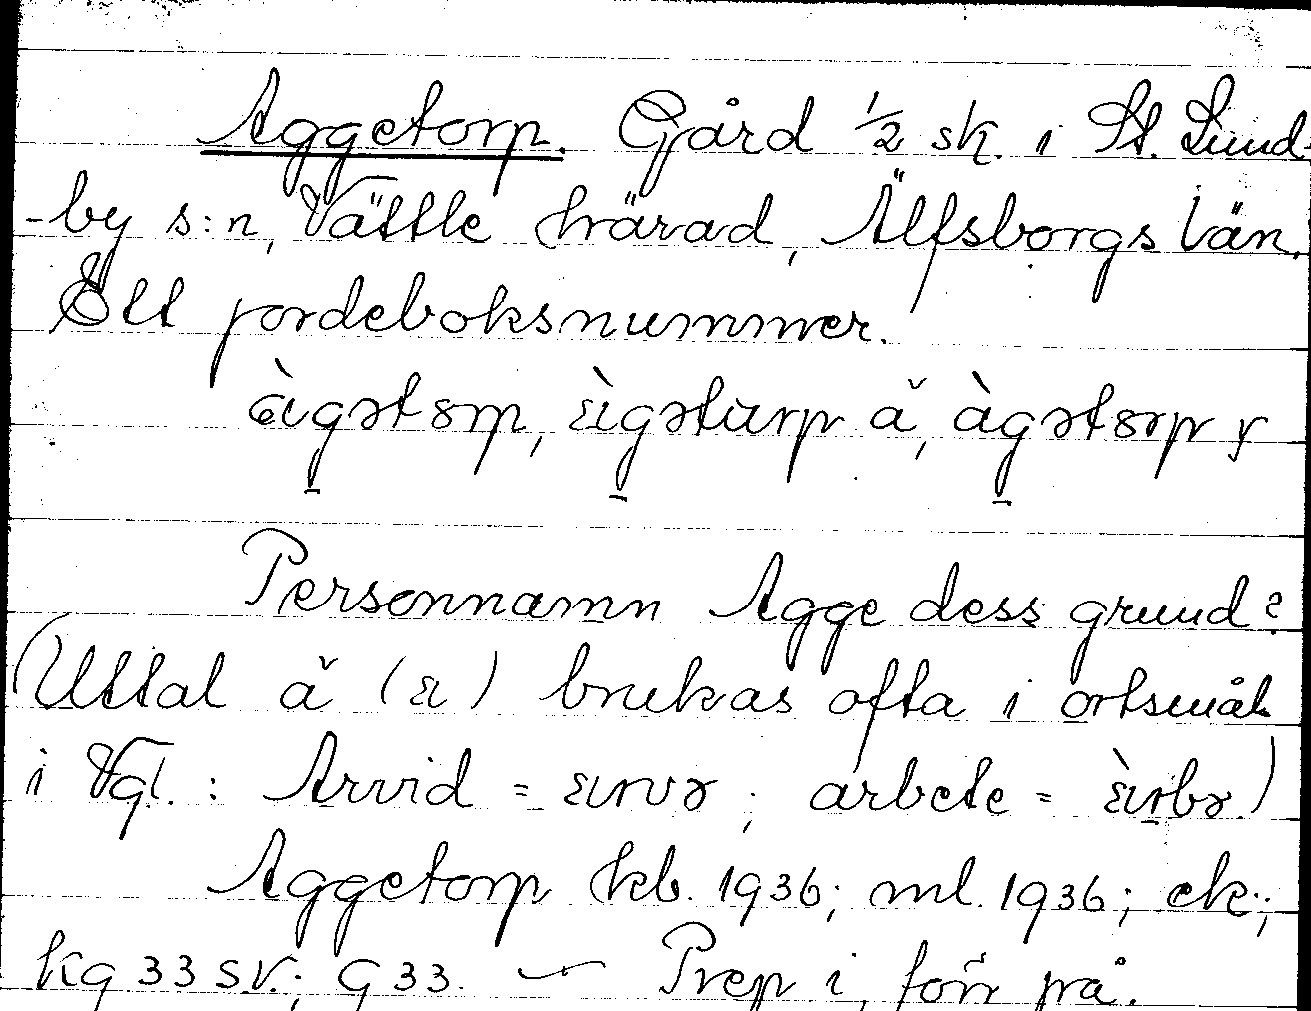 Aggetorp. Gård 1/2 sk. i St. Lund-
-by s:n, Vättle härad, Älfsborgs län.
Ett jordeboksnummer.
àgətɔrp, ὰgətɑrp ǎ, àgətɔrp y
Personnamn Agge dess grund?
(Uttal ǎ (ɛ) brukas ofta i ortsmål
i Vgl. : Arvid = ɛrvə ; arbete = ɛ̀rbə)
Aggetorp kb. 1936; ml. 1936; ek.;
kg 33 sv.; G 33. — Prep i, förr på.